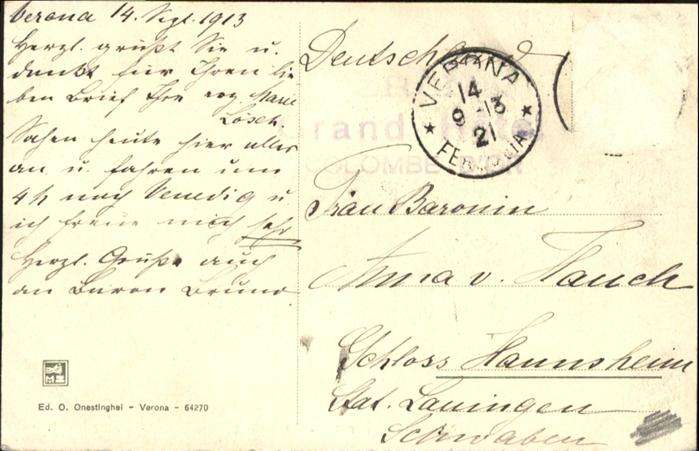 Verona 14. Sept. 1913
Herzl. grüßt Sie u.
dankt für Ihren lie
ben Brief Ihre erg. Marie
Lösch.
Sahen heute hier alles
an u. fahren um
4h nach Venedig u
ich freue mich sehr
Herzl. Grüße auch
an Baron Bruno.
Ed. O. Onestinghel - Verona - 64270
Deutschland
VERONA
14 9 13
21
FERROVIA
Grand Hotel
COLOMBE D'OR
Frau Baronin
Anna v. Hauch
Schloss Haunsheim
Stat. Lauingen
Schwaben